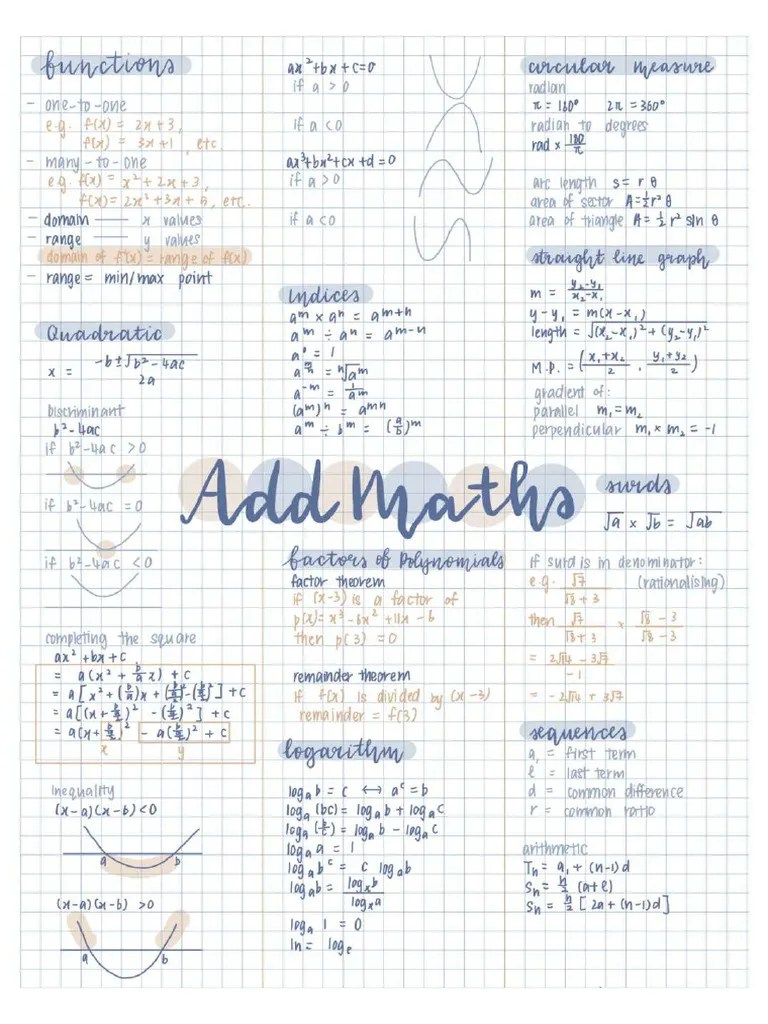 functions
- one-to-one
e.g. f(x) = 2x + 3,
f(x) = 3x+1, etc
- many-to-one
e.g. f(x) = x² + 2x + 3,
f(x) = 2x² + 3x + 6, etc.
- domain — x values
- range — y values
domain of f'(x) = range of f(x)
- range = min/max point
Quadratic
x = -b ± √b² - 4ac / 2a
discriminant
b² - 4ac
if b² - 4ac > 0
if b² - 4ac = 0
if b² - 4ac < 0
completing the square
ax² + bx + c
= a(x² + b/a x) + c
= a[x² + (b/a)x + (b/2)² - (b/2)²] + c
= a[(x + b/2)² - (b/2)²] + c
= a(x + b/2)² - a(b/2)² + c
x y
inequality
(x-a)(x-b) < 0
a b
(x-a)(x-b) > 0
a b
ax² + bx + c = 0
if a > 0
if a < 0
ax³ + bx² + cx + d = 0
if a > 0
if a < 0
indices
aᵐ × aⁿ = aᵐ⁺ⁿ
aᵐ ÷ aⁿ = aᵐ⁻ⁿ
a⁰ = 1
a^(m/n) = ⁿ√aᵐ
a⁻ᵐ = 1/aᵐ
(aᵐ)ⁿ = aᵐⁿ
aᵐ ÷ bᵐ = (a/b)ᵐ
Add Maths
factors of Polynomials
factor theorem
if (x-3) is a factor of
p(x) = x³ - 6x² + 11x - 6
then p(3) = 0
remainder theorem
if f(x) is divided by (x-3)
remainder = f(3)
logarithm
logₐ b = c ↔ aᶜ = b
logₐ (bc) = logₐ b + logₐ c
logₐ (b/c) = logₐ b - logₐ c
logₐ a = 1
logₐ bᶜ = c logₐ b
logₐ b = logₓ b / logₓ a
logₐ 1 = 0
ln = logₑ
circular measure
radian
π = 180° 2π = 360°
radian to degrees
rad × 180/π
arc length s = r θ
area of sector A = ½ r² θ
area of triangle A = ½ r² sin θ
straight line graph
m = y₂-y₁ / x₂-x₁
y - y₁ = m(x - x₁)
length = √(x₂-x₁)² + (y₂-y₁)²
M.P. = (x₁+x₂ / 2 , y₁+y₂ / 2)
gradient of:
parallel m₁ = m₂
perpendicular m₁ × m₂ = -1
surds
√a × √b = √ab
if surd is in denominator:
e.g. √7 / √8 + 3 (rationalising)
then √7 / √8 + 3 × √8 - 3 / √8 - 3
= 2√14 - 3√7 / -1
= -2√14 + 3√7
sequences
a₁ = first term
ℓ = last term
d = common difference
r = common ratio
arithmetic
Tₙ = a₁ + (n-1)d
Sₙ = n/2 (a + ℓ)
Sₙ = n/2 [2a + (n-1)d]